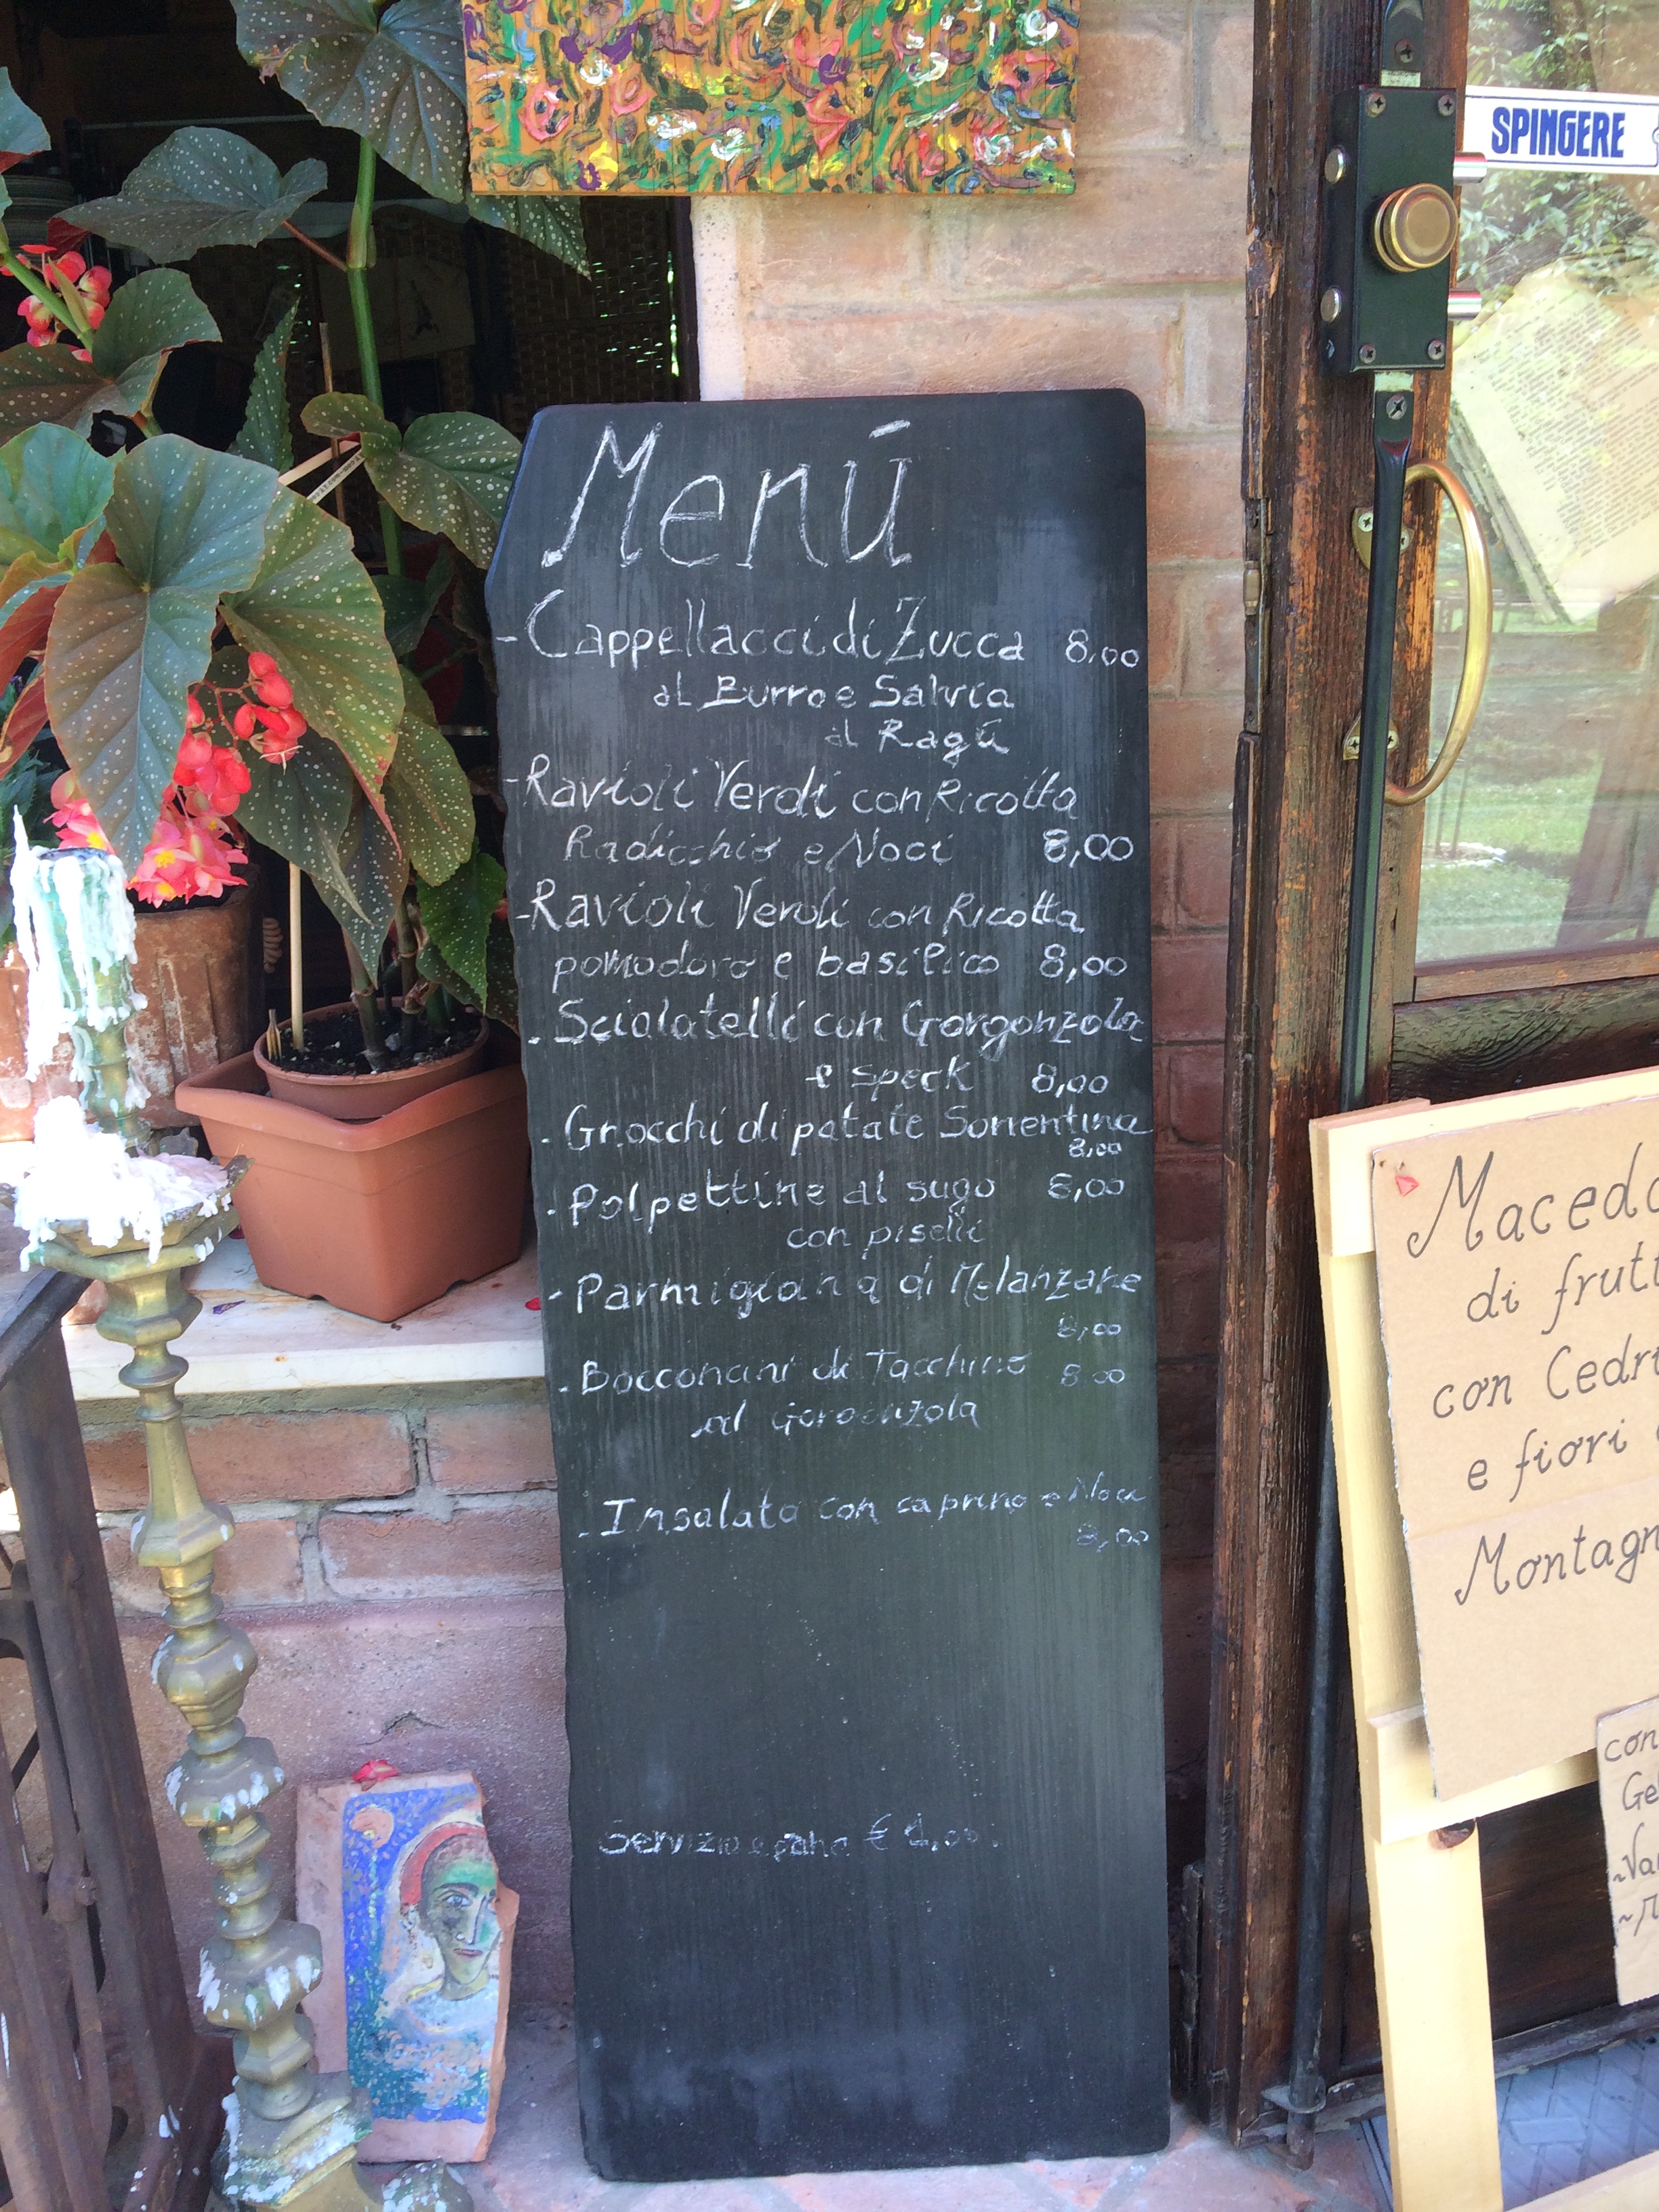 SPINGERE
Menú
- Cappellacci di Zucca 8,00
al Burro e Salvia
al Ragú
- Ravioli Verdi con Ricotta
Radicchio e Noci 8,00
- Ravioli Verdi con Ricotta
pomodoro e basilico 8,00
- Scialatelli con Gorgonzola
e speck 8,00
- Gnocchi di patate Sorrentina
8,00
- Polpettine al sugo 8,00
con piselli
- Parmigiana di Melanzane
8,00
- Bocconcini di Tacchino 8,00
al Gorgonzola
- Insalata con caprino e Noci
8,00
Servizio e pane € 1,00
Macedo
di frutt
con Cedr
e fiori
Montagn
con
Ge